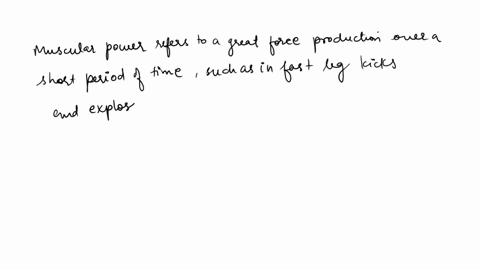 Muscular power refers to a great force production over a
short period of time, such as in fast leg kicks
and explos